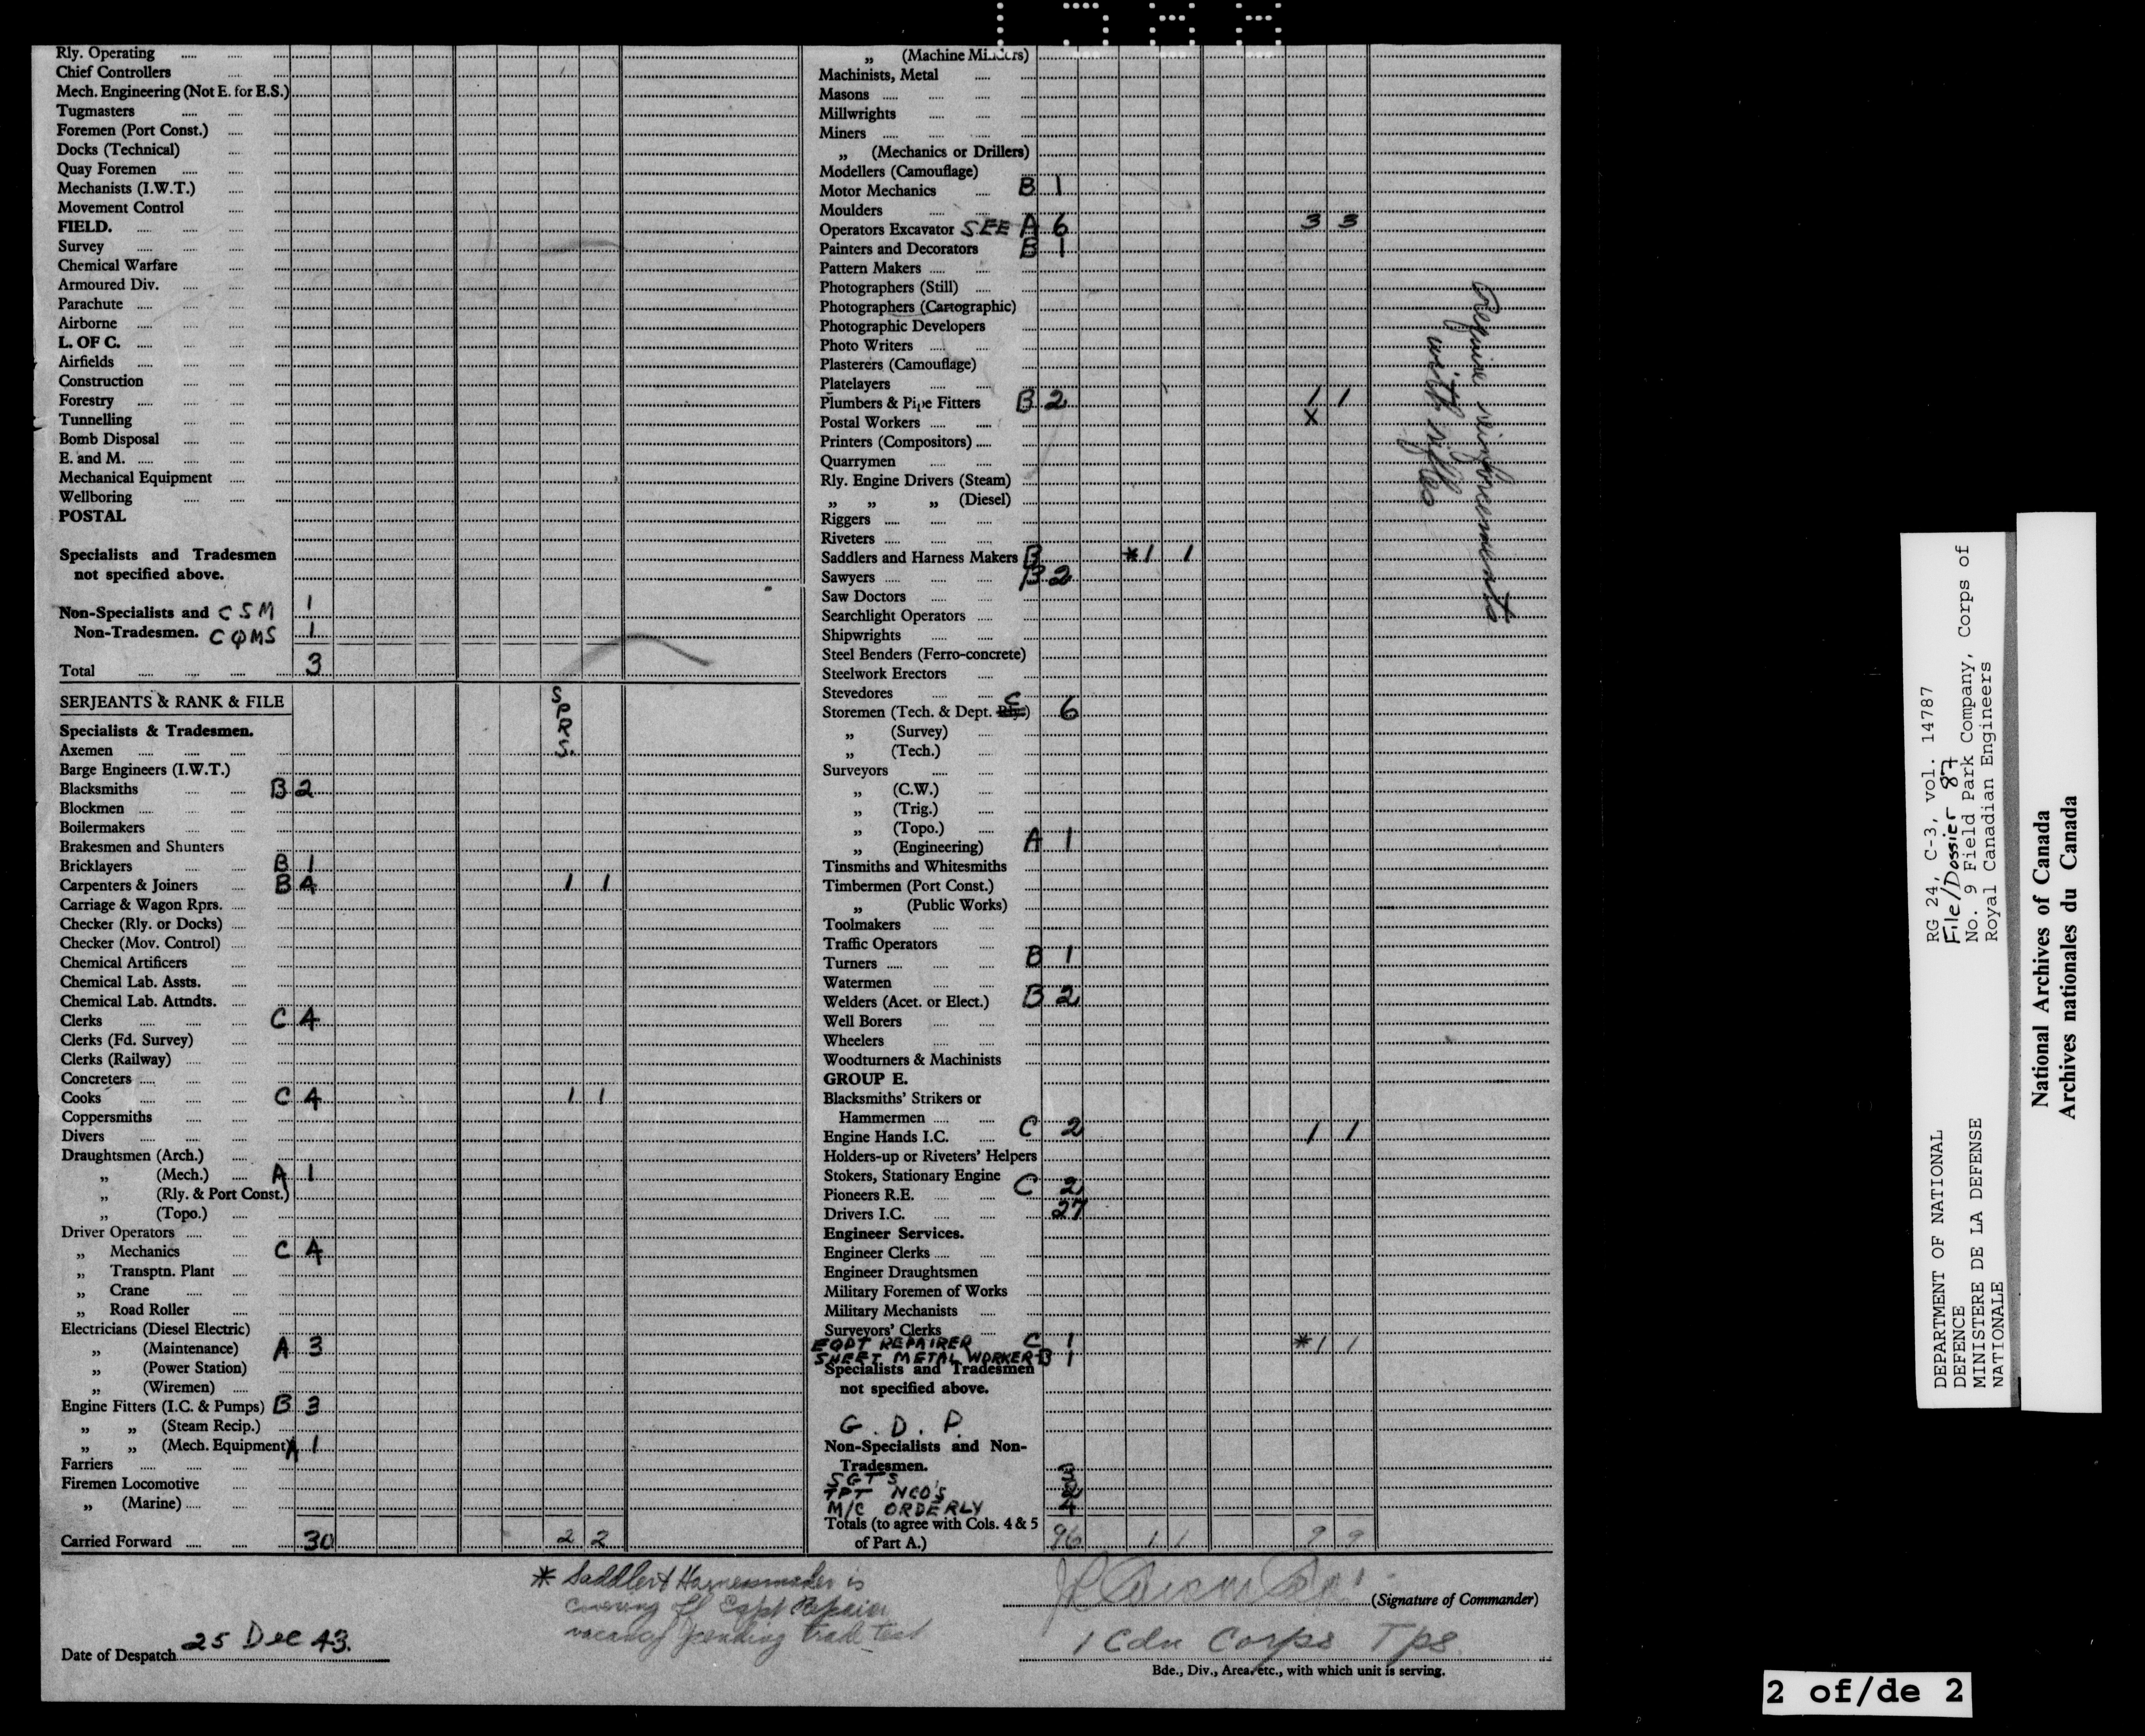 Rly. Operating
Chief Controllers
Mech. Engineering (Not E. for E.S.)
Tugmasters
Foremen (Port Const.)
Docks (Technical)
Quay Foremen
Mechanists (I.W.T.)
Movement Control
FIELD.
Survey
Chemical Warfare
Armoured Div.
Parachute
Airborne
L. OF C.
Airfields
Construction
Forestry
Tunnelling
Bomb Disposal
E. and M.
Mechanical Equipment
Wellboring
POSTAL
Specialists and Tradesmen
not specified above.
Non-Specialists and CSM 1
Non-Tradesmen. CQMS 1
Total 3
SERJEANTS & RANK & FILE
SPRS.
Specialists & Tradesmen.
Axemen
Barge Engineers (I.W.T.)
Blacksmiths B 2
Blockmen
Boilermakers
Brakesmen and Shunters
Bricklayers B 1
Carpenters & Joiners B 4 1 1
Carriage & Wagon Rprs.
Checker (Rly. or Docks)
Checker (Mov. Control)
Chemical Artificers
Chemical Lab. Assts.
Chemical Lab. Attndts.
Clerks C 4
Clerks (Fd. Survey)
Clerks (Railway)
Concreters
Cooks C 4 1 1
Coppersmiths
Divers
Draughtsmen (Arch.)
„ (Mech.) A 1
„ (Rly. & Port Const.)
„ (Topo.)
Driver Operators
„ Mechanics C 4
„ Transptn. Plant
„ Crane
„ Road Roller
Electricians (Diesel Electric)
„ (Maintenance) A 3
„ (Power Station)
„ (Wiremen)
Engine Fitters (I.C. & Pumps) B 3
„ „ (Steam Recip.)
„ „ (Mech. Equipment) A 1
Farriers
Firemen Locomotive
„ (Marine)
Carried Forward 30 2 2
„ (Machine Minders)
Machinists, Metal
Masons
Millwrights
Miners
„ (Mechanics or Drillers)
Modellers (Camouflage)
Motor Mechanics B 1
Moulders
Operators Excavator SEE A 6 3 3
Painters and Decorators B 1
Pattern Makers
Photographers (Still)
Photographers (Cartographic)
Photographic Developers
Photo Writers
Plasterers (Camouflage)
Platelayers
Plumbers & Pipe Fitters B 2 1 1
Postal Workers X
Printers (Compositors)
Quarrymen
Rly. Engine Drivers (Steam)
„ „ „ (Diesel)
Riggers
Riveters
Saddlers and Harness Makers B *1 1
Sawyers B 2
Saw Doctors
Searchlight Operators
Shipwrights
Steel Benders (Ferro-concrete)
Steelwork Erectors
Stevedores
Storemen (Tech. & Dept. Rly.) C 6
„ (Survey)
„ (Tech.)
Surveyors
„ (C.W.)
„ (Trig.)
„ (Topo.)
„ (Engineering) A 1
Tinsmiths and Whitesmiths
Timbermen (Port Const.)
„ (Public Works)
Toolmakers
Traffic Operators
Turners B 1
Watermen
Welders (Acet. or Elect.) B 2
Well Borers
Wheelers
Woodturners & Machinists
GROUP E.
Blacksmiths' Strikers or
Hammermen
Engine Hands I.C. C 2 1 1
Holders-up or Riveters' Helpers
Stokers, Stationary Engine
Pioneers R.E. C 2
Drivers I.C. 27
Engineer Services.
Engineer Clerks
Engineer Draughtsmen
Military Foremen of Works
Military Mechanists
Surveyors' Clerks
EQPT REPAIRER C 1 *1 1
SHEET METAL WORKER B 1
Specialists and Tradesmen
not specified above.
G. D. P.
Non-Specialists and Non-
Tradesmen.
SGTS 3
TPT NCO'S 2
M/C ORDERLY 4
Totals (to agree with Cols. 4 & 5
of Part A.) 96 1 1 9 9
Require reinforcements
with rifles
* Saddler & Harnessmaker is
covering off Eqpt Repairer
vacancy pending trade test
Date of Despatch 25 Dec 43.
(Signature of Commander)
1 Cdn Corps Tps.
Bde., Div., Area, etc., with which unit is serving.
RG 24, C-3, vol. 14787
File/Dossier 87
No. 9 Field Park Company, Corps of
Royal Canadian Engineers
DEPARTMENT OF NATIONAL
DEFENCE
MINISTERE DE LA DEFENSE
NATIONALE
National Archives of Canada
Archives nationales du Canada
2 of/de 2